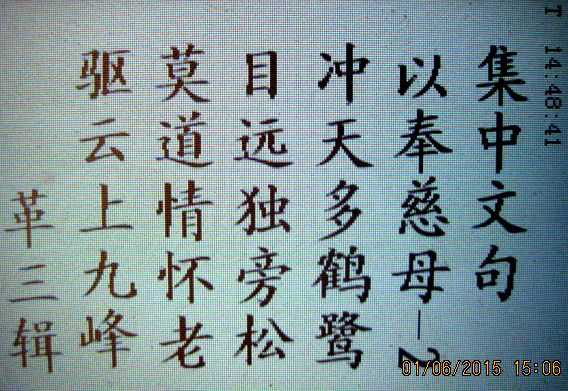 集中文句
以奉慈母—2
冲天多鹤鹭
目远独旁松
莫道情怀老
驱云上九峰
革三辑
T 14:48:41
01/06/2015 15:06